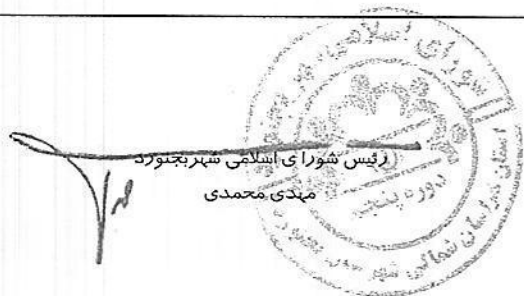 رئیس شورای اسلامی شهر بجنورد
مهدی محمدی
شورای اسلامی شهر بجنورد
دوره پنجم
استان خراسان شمالی شهر